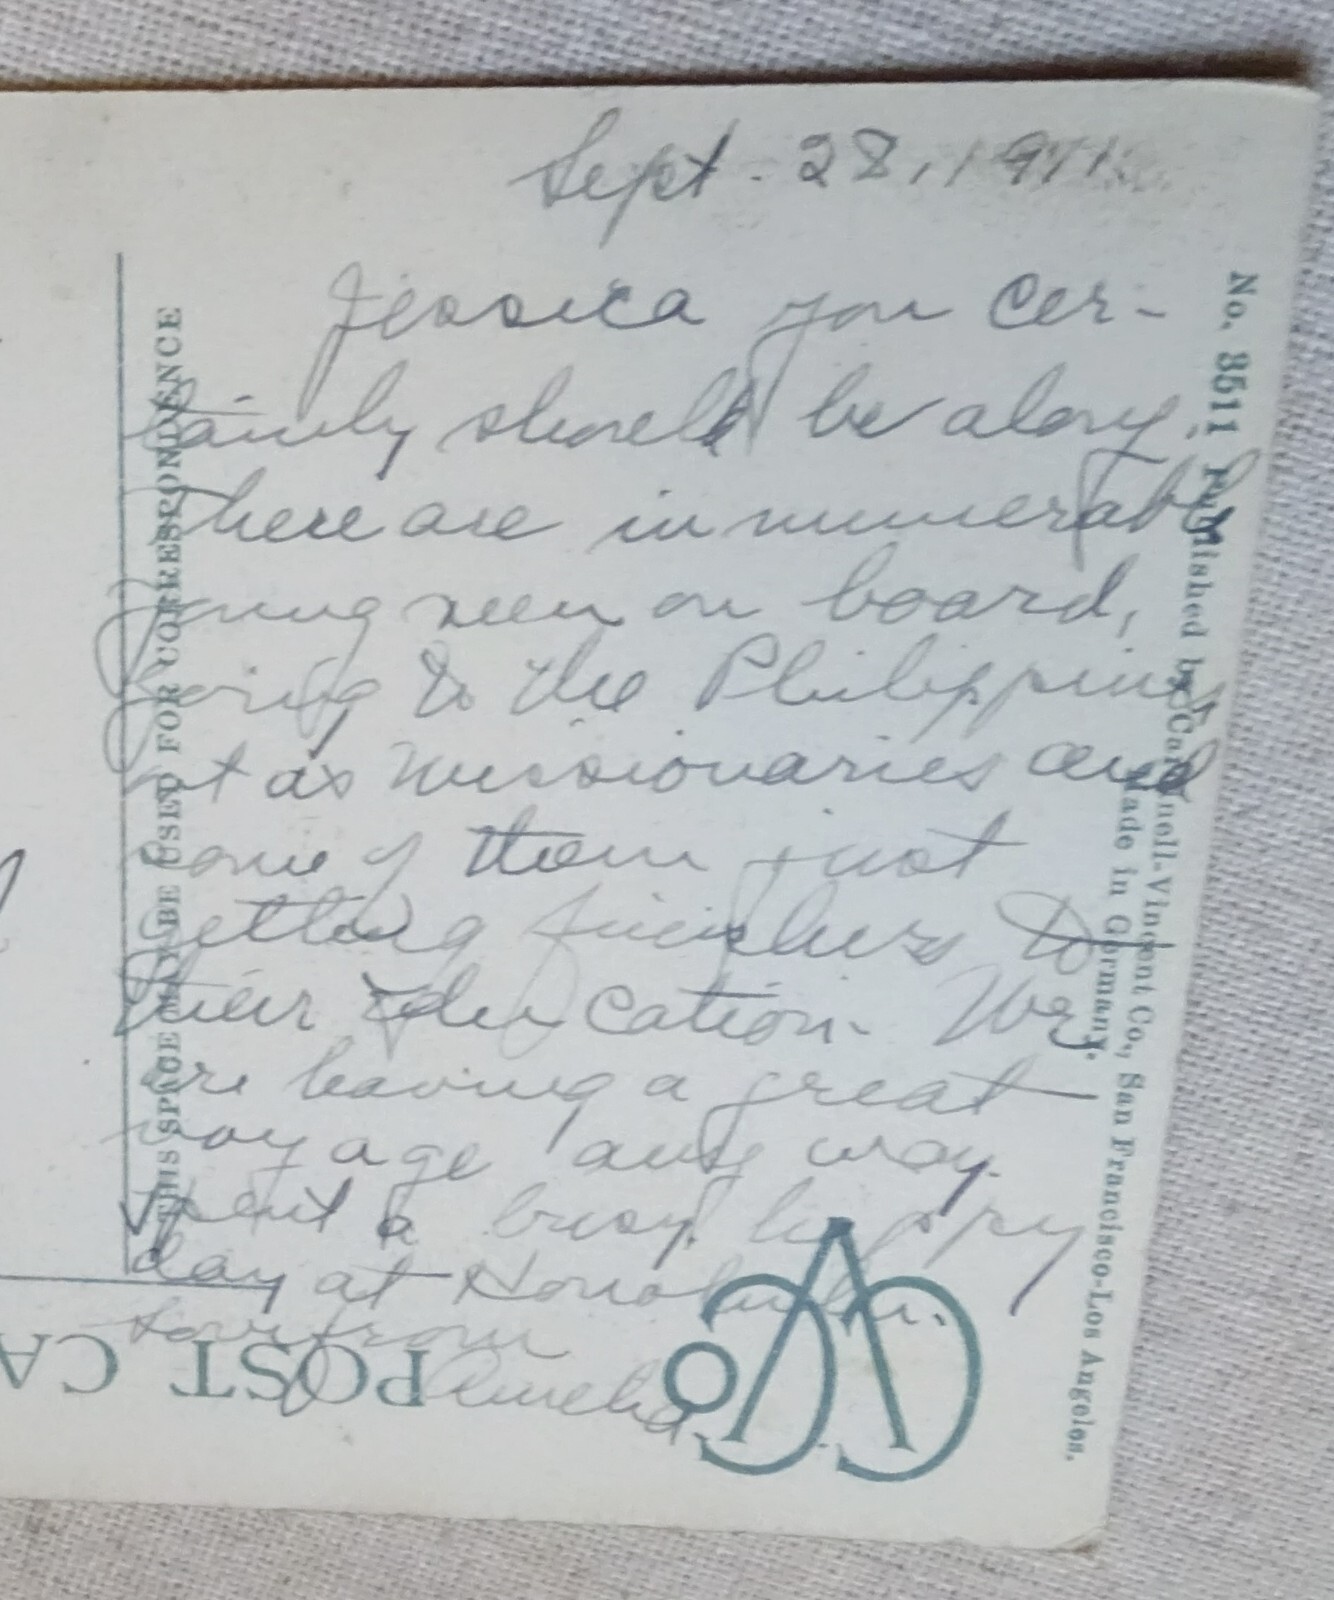 Sept. 28, 191
Jessica you cer-
tainly should be along.
There are innumerable
young men on board,
going to the Philippines
not as missionaries and
some of them just
getting finishers to
their education. We
are having a great
voyage any way.
Spent a busy happy
day at Honolulu.
Love from
Amelia.
THIS SPACE MAY BE USED FOR CORRESPONDENCE
POST CA
No. 3511 Published by Cardinell-Vincent Co., San Francisco-Los Angeles.
Made in Germany.
CVCo